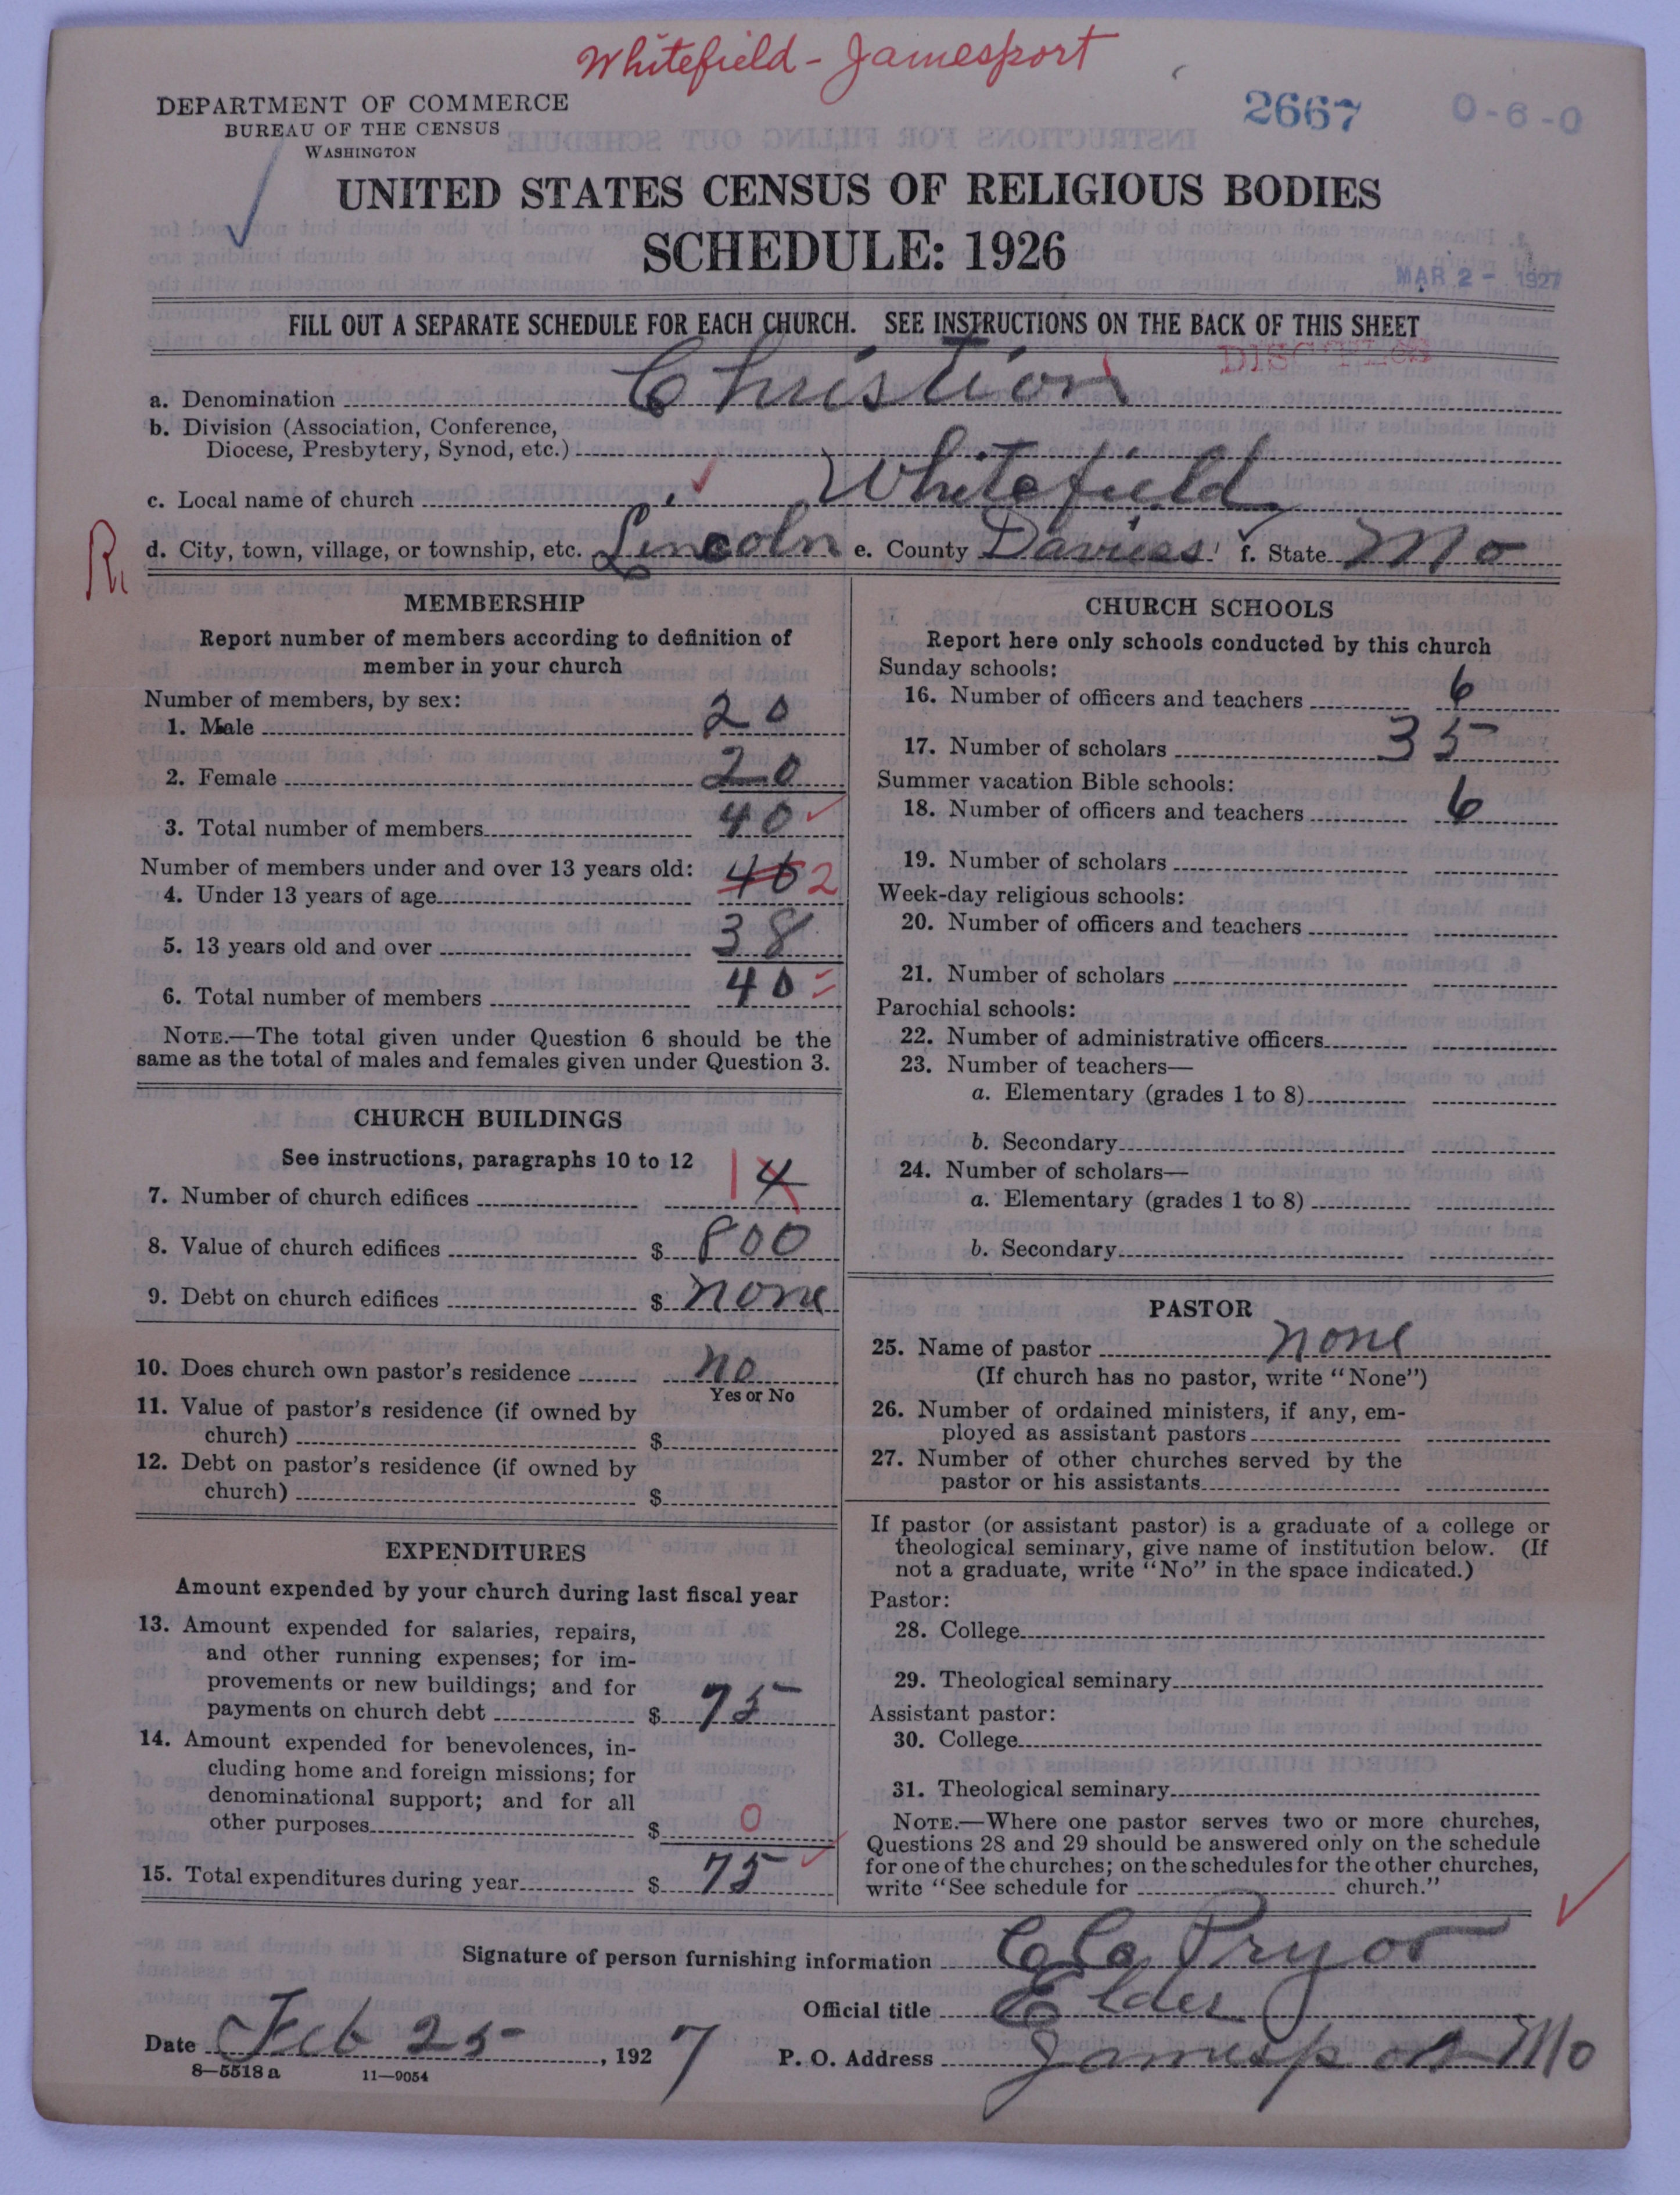 Whitefield - Jamesport
DEPARTMENT OF COMMERCE
BUREAU OF THE CENSUS
WASHINGTON
2667
0-6-0
UNITED STATES CENSUS OF RELIGIOUS BODIES
SCHEDULE: 1926
MAR 2 - 1927
FILL OUT A SEPARATE SCHEDULE FOR EACH CHURCH. SEE INSTRUCTIONS ON THE BACK OF THIS SHEET
a. Denomination Christian
b. Division (Association, Conference,
Diocese, Presbytery, Synod, etc.)
c. Local name of church Whitefield
d. City, town, village, or township, etc. Lincoln e. County Daviess f. State Mo
MEMBERSHIP
Report number of members according to definition of
member in your church
Number of members, by sex:
1. Male 20
2. Female 20
3. Total number of members 40
Number of members under and over 13 years old:
4. Under 13 years of age 40 2
5. 13 years old and over 38
6. Total number of members 40
NOTE.—The total given under Question 6 should be the
same as the total of males and females given under Question 3.
CHURCH BUILDINGS
See instructions, paragraphs 10 to 12
7. Number of church edifices 1 4
8. Value of church edifices $ 800
9. Debt on church edifices $ none
10. Does church own pastor's residence no
Yes or No
11. Value of pastor's residence (if owned by
church) $
12. Debt on pastor's residence (if owned by
church) $
EXPENDITURES
Amount expended by your church during last fiscal year
13. Amount expended for salaries, repairs,
and other running expenses; for im-
provements or new buildings; and for
payments on church debt $ 75
14. Amount expended for benevolences, in-
cluding home and foreign missions; for
denominational support; and for all
other purposes $ 0
15. Total expenditures during year $ 75
CHURCH SCHOOLS
Report here only schools conducted by this church
Sunday schools:
16. Number of officers and teachers 6
17. Number of scholars 35
Summer vacation Bible schools:
18. Number of officers and teachers 6
19. Number of scholars
Week-day religious schools:
20. Number of officers and teachers
21. Number of scholars
Parochial schools:
22. Number of administrative officers
23. Number of teachers—
a. Elementary (grades 1 to 8)
b. Secondary
24. Number of scholars—
a. Elementary (grades 1 to 8)
b. Secondary
PASTOR
25. Name of pastor none
(If church has no pastor, write "None")
26. Number of ordained ministers, if any, em-
ployed as assistant pastors
27. Number of other churches served by the
pastor or his assistants
If pastor (or assistant pastor) is a graduate of a college or
theological seminary, give name of institution below. (If
not a graduate, write "No" in the space indicated.)
Pastor:
28. College
29. Theological seminary
Assistant pastor:
30. College
31. Theological seminary
NOTE.—Where one pastor serves two or more churches,
Questions 28 and 29 should be answered only on the schedule
for one of the churches; on the schedules for the other churches,
write "See schedule for church."
Signature of person furnishing information Pryor
Official title Elder
Date Feb 25, 1927 P. O. Address Jamesport Mo
8—5518a 11—9054